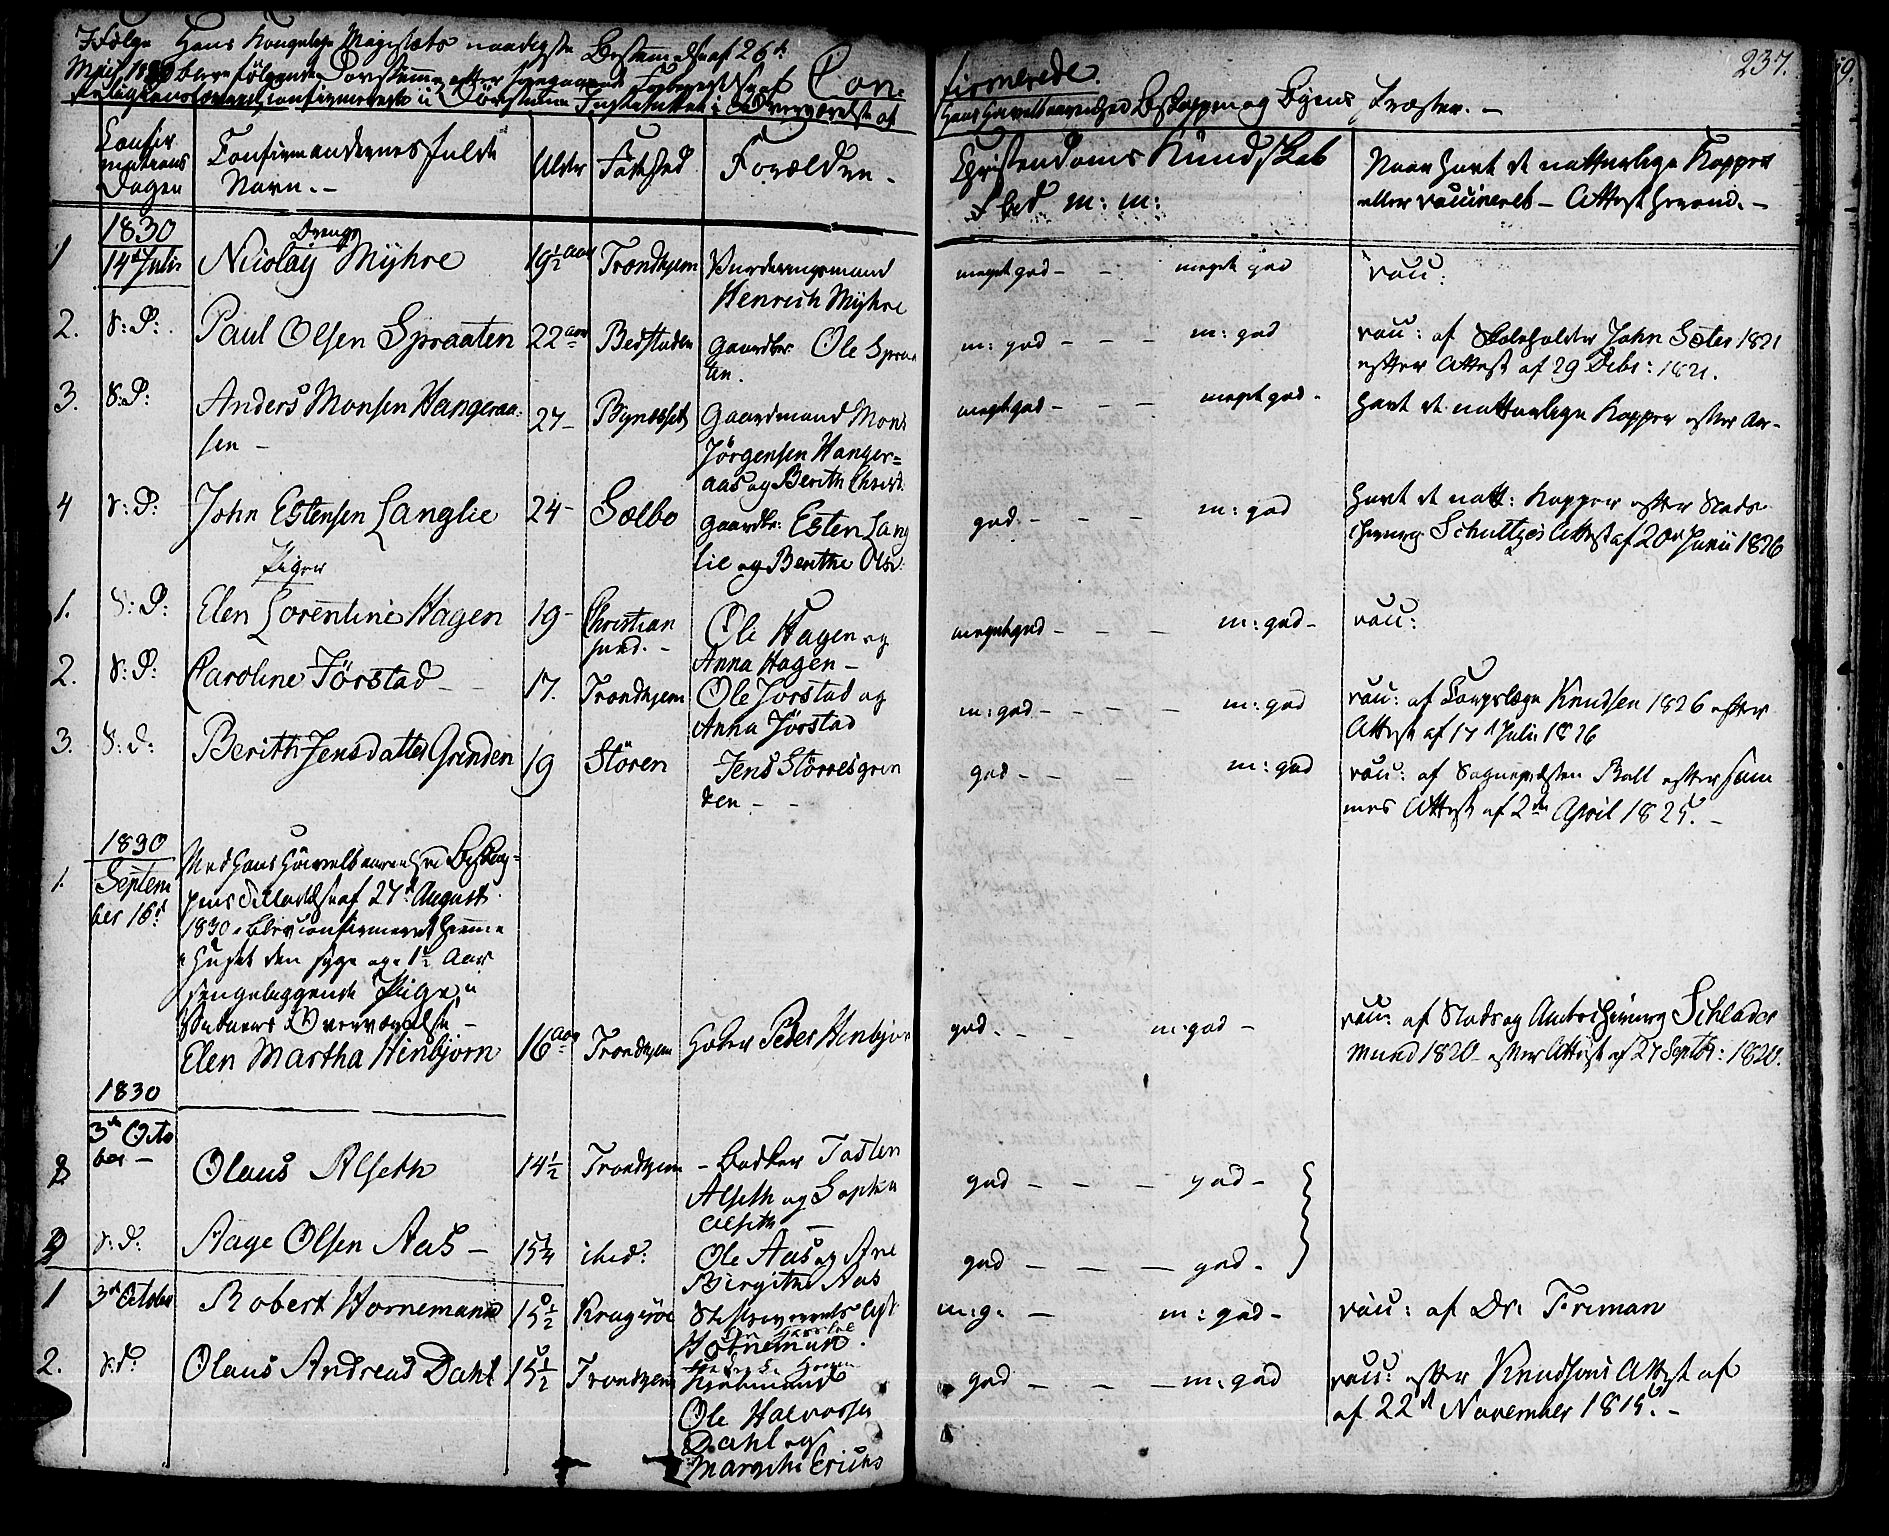 Ifölge Hans Kongelige Majestæts naadigste Bestemmelse af 26de
Maij 1830 bleve følgende Døvstumme efter foregaaende Forberedelse af
Religions confirmerede i Døvstumme Instituttet i Overværelse af
Con- firmerede.
237.
Hans Høivelbaarenhed Biskoppen og Byens Præster. -
Confir
mations
Dagen
Confirmandernes fulde
Navn. -
Alder
Fødested
Forældre. -
Christendoms Kundskab
Flid m: m:
Naar havt de naturlige Kopper
eller vaccineret - Attest herom. -
1830
Drenge
1 14de Julii Nicolaij Myhre 19½ aar Trondhjem Vurderingsmand
Henrich Myhre
meget god - - meget god vacc:
2. S: D: Paul Olsen Spraaten 22 aar Bedstaden Gaardbr: Ole Spraa
ten.
m: god - - - m: god vacc: af Skoleholder John Soter 1821
efter Attest af 29 Decbr: 1821.
3. S: D: Anders Monsen Hangeraa-
sen - 27- Bynesset Gaardmand Mons
Jörgensen Hanger=
aas og Berith Christ:
meget god - - - meget god - havt de naturlige Kopper efter Ar-
4 S: D: John Estensen Langlie 24- Sælbo Gaardbr: Esten Lang
lie og Berithe Ols:
god. - - - m: god havt de natt: Kopper efter Stads
Chirurg Schultzes Attest af 20de Junii 1826
Piger
1. S: D: Elen Lorentine Hagen 19- Christian
sund. - Ole Hagen og
Anna Hagen -
meget god - - - m: god - vacc:
2. S: D: Caroline Jörstad - - 17. Trondhjem Ole Jörstad og
Anna Jörstad
m: god - - - - m: god vacc: af Corpslæge Knudsen 1826 efter
Attest af 17de Julii 1826
3. S: D: Berith Jensdatter Grinden 19 Stören Jens Störresgrin
den - -
god - - - m: god vacc: af Sognepræsten Ball efter sam
mes Attest af 2den April 1825. -
1830
1. Septem
ber 16de
Med Hans Høivelbaarenhed Biskop-
pens Tilladelse af 27de August
1830 blev confirmeret hiemme
i Huset den syge og 1½ Aar
sengeliggende Pige, i
Overværelse -
Elen Martha Hinbjorn 16 aar Trondhjem Peter Hinbjorn
god. - - m: god - vacc: af Stads og Amtschirurg Schlader
mund 1820 - efter Attest af 27 Septbr: 1820.
1830
3de Octo
ber -
2 Olaus Alseth 14½ Trondhjem - Bødker Tosten
Alseth og Sophia
Alseth -
god - - - god -
2 S: D: Aage Olsen Aas - 15¼ ibid: Ole Aas og Ane
Birgitha Aas
god - - - god -
1 3de October Robert Hornemann 15½ Kragerøe
Hornemann.
m: g. - m: god - vacc: af Dr: Friman
2. S: D: Olaus Andreas Dahl 15½ Trondhjem
Ole Halvorsen
Dahl og
Margithe Erichs
god - - - m: god vacc: efter Knudsons Attest af
af 22de November 1815. -